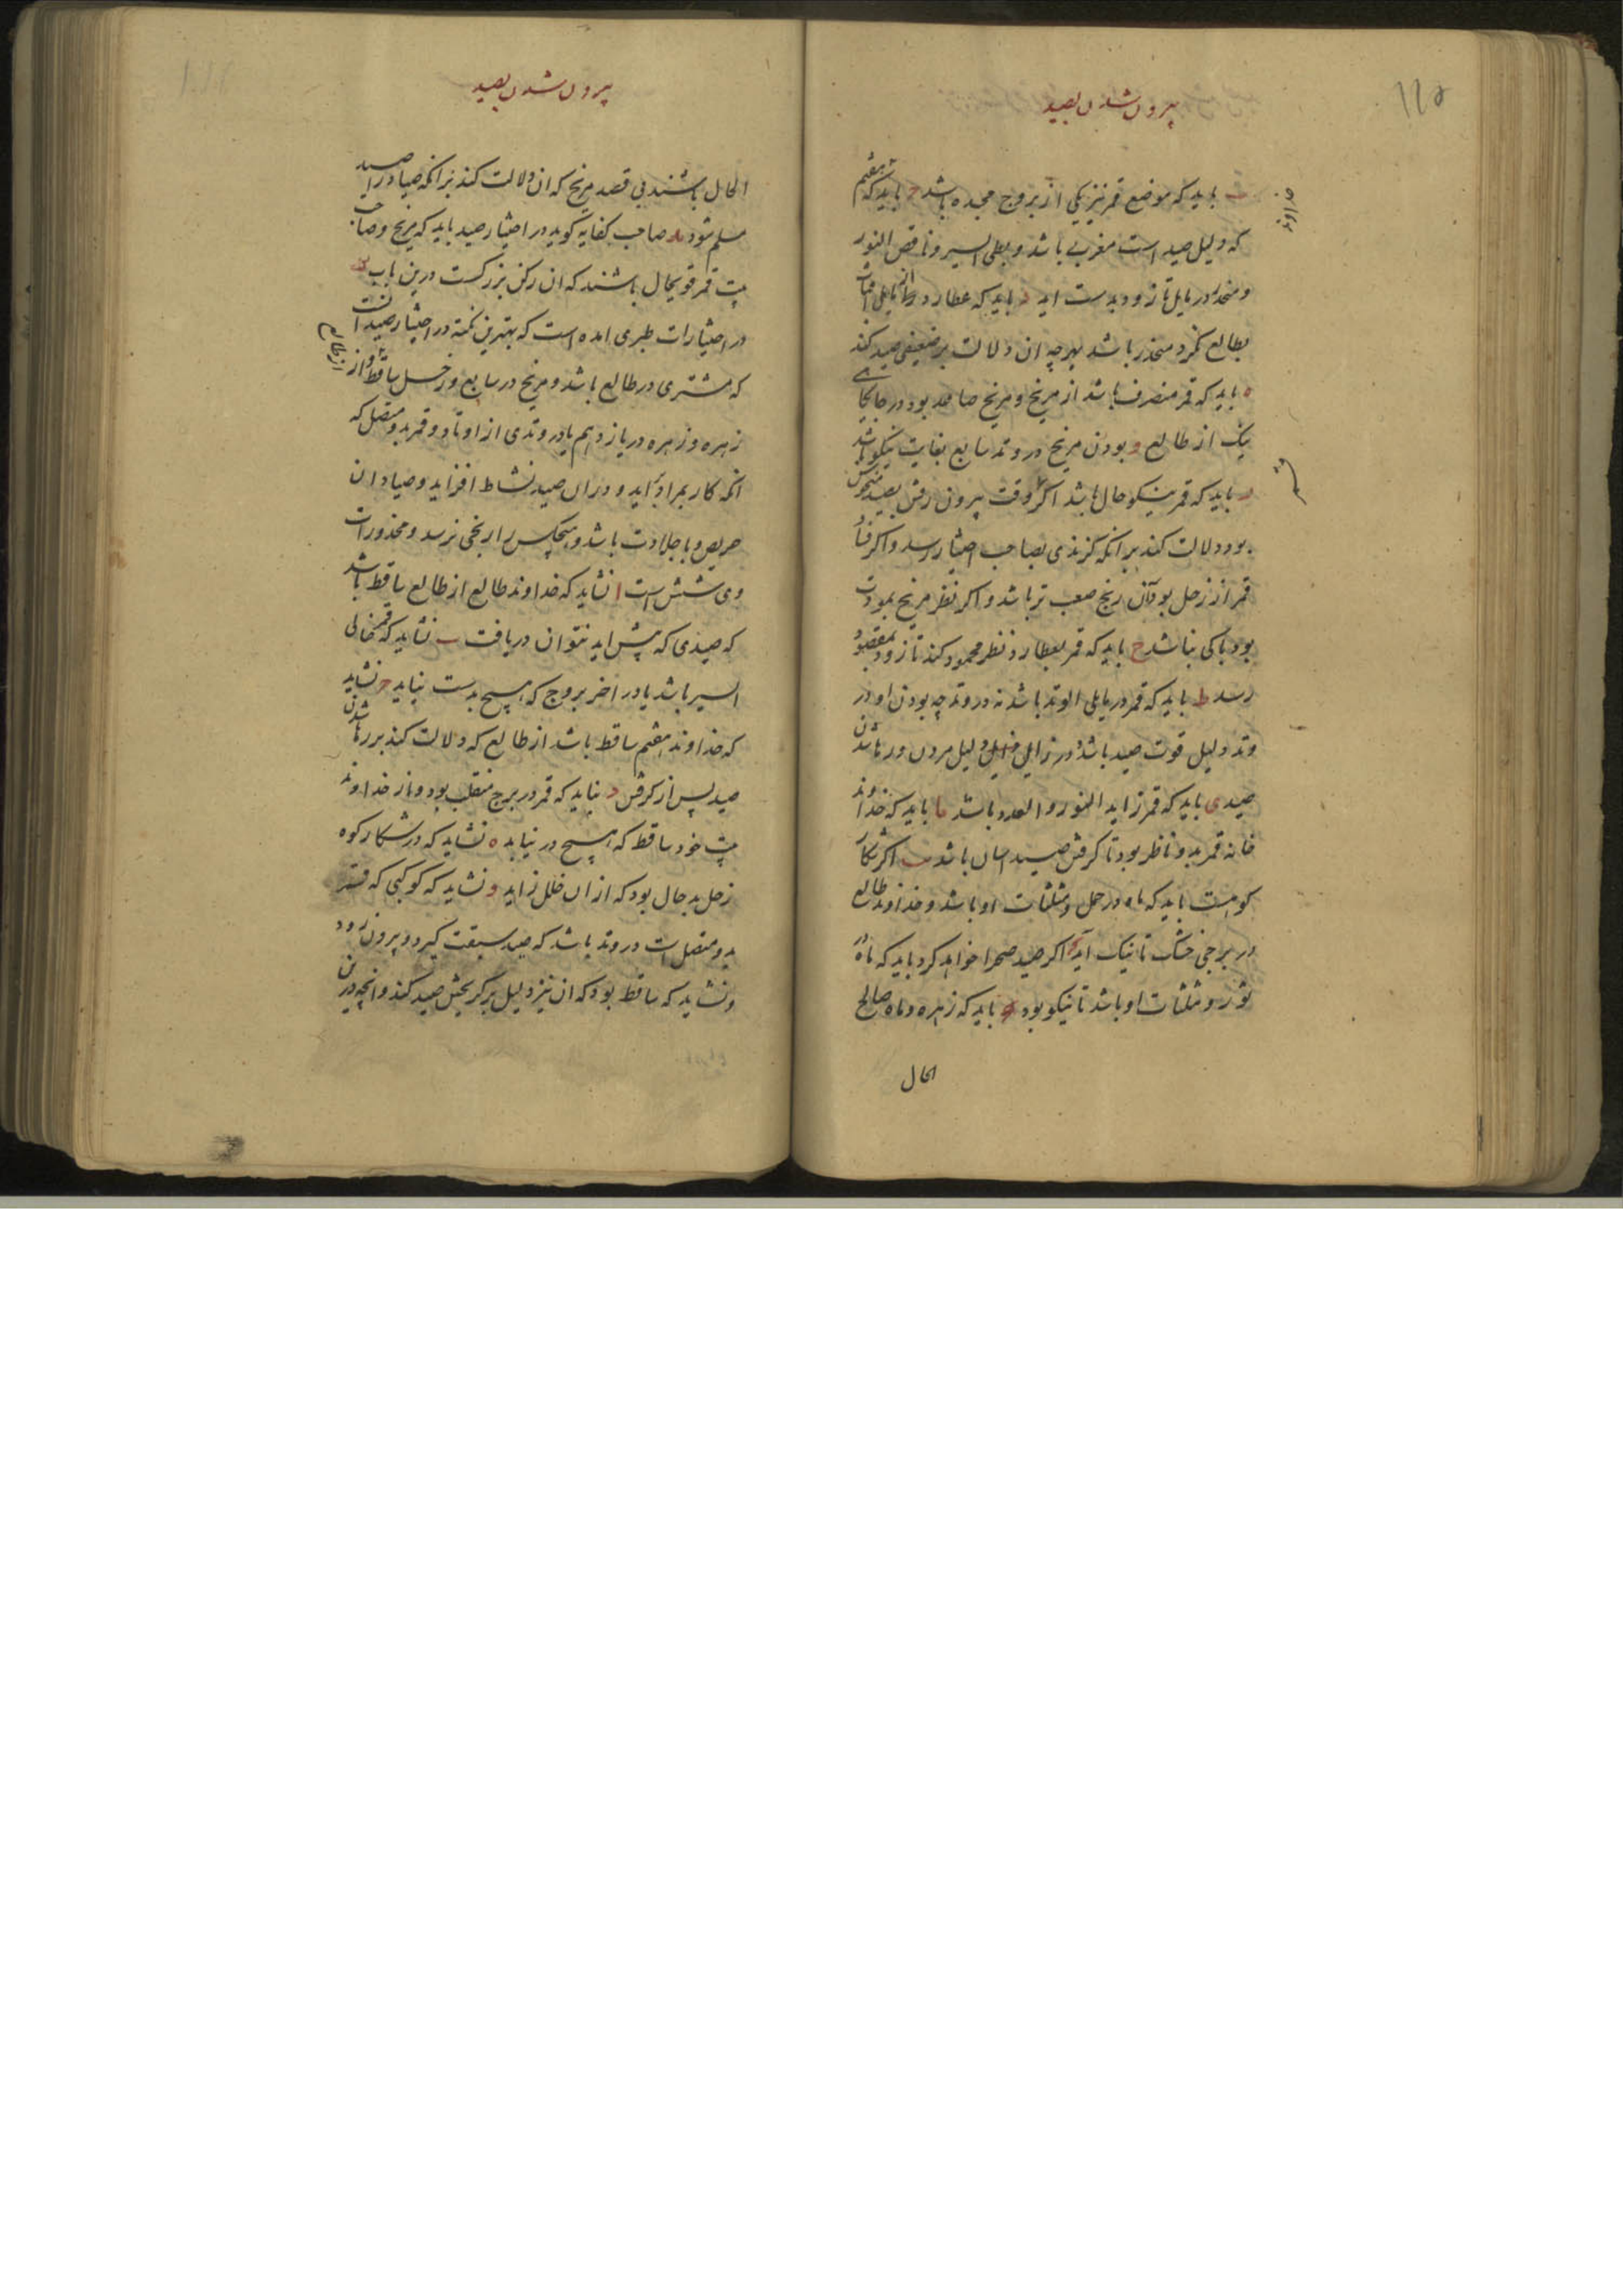 بیرون شدن بصید
ب باید که موضع قمر نیز یکی از بروج مجیده باشد ح باید که هفتم
خداوند
که دلیل صید است مغربی باشد و بطی السیر و ناقص النور
و منحدر در مایل تا زود بدست اید د باید که عطارد
بطالع نکرد منحدر باشد بهرچه ان دلالت بر ضعیفی صید کند
ه باید که قمر منصرف باشد از مریخ و مریخ صاعد بود در جایکاهی
نیک از طالع و بودن مریخ در وتد سابع بغایت نیکو باشد
ر باید که قمر نیکو حال باشد اکر وقت بیرون رفتن بصید منحوس
بود دلالت کند بر انکه کزندی بصاحب اختیار رسد و اکر
قمر از زحل بود ان رنج صعب تر باشد و اکر نظر مریخ بمودت
بود باکی نباشد ح باید که قمر بعطارد نظر محمود کند تا زود بمقصود
رسد ط باید که قمر در مایلی الوتد باشد نه در وتد چه بودن او در
وتد دلیل قوت صید باشد و در زایل دلیل مردن و رها شدن
صید ی باید که قمر زاید النور و العدد باشد یا باید که خداوند
خانه قمر بدو ناظر بود تا کرفتن صید اسان باشد یب اکر شکار
کوهست باید که ماه در حمل و مثلثات او باشد و خداوند طالع
در برجی خشک تا نیک اید اکر صید صحرا خواهد کرد باید که ماه در
ثور و مثلثات او باشد تا نیکو بود باید که زهره و ماه صالح
الحال
بیرون شدن بصید
الحال باشند بی قصد مریخ که ان دلالت کند بر انکه صیاد را صید
مسلم شود ید صاحب کفایه کوید در اختیار صید باید که مریخ و صاحب
بیت قمر قوی حال باشند که ان رکن بزرکست درین باب یه
در اختیارات طبری امده است که بهترین نکته در اختیار صید انست
که مشتری در طالع باشد و مریخ در سابع و زحل ساقط از
از طالع
زهره و زهره در یازدهم یا در وتدی از اوتاد و قمر بدو متصل که
انکه کار بمراد اید و دران صید نشاط افزاید و صیادان
حریص و با جلادت باشد و هیچکس را رنجی نرسد و محذورات
وی شش است ا نشاید که خداوند طالع از طالع ساقط باشد
که صیدی که پیش اید نتوان دریافت ب نشاید که قمر خالی
السیر باشد یا در اخر بروج که هیچ بدست نیاید ح نشاید
که خداوند هفتم ساقط باشد از طالع که دلالت کند بر رها شدن
صید پس از کرفتن د نباید که قمر در برج منقلب بود و از خداوند
بیت خود ساقط که هیچ در نیابد ه نشاید که در شکار کوه
زحل بد حال بود که از ان خلل زاید و نشاید که کوکبی که قمر
بدو متصل است در وتد باشد که صید سبقت کیرد و بیرون رود
و نشاید که ساقط بود که ان نیز دلیل بر کریختن صید کند و انچه درین